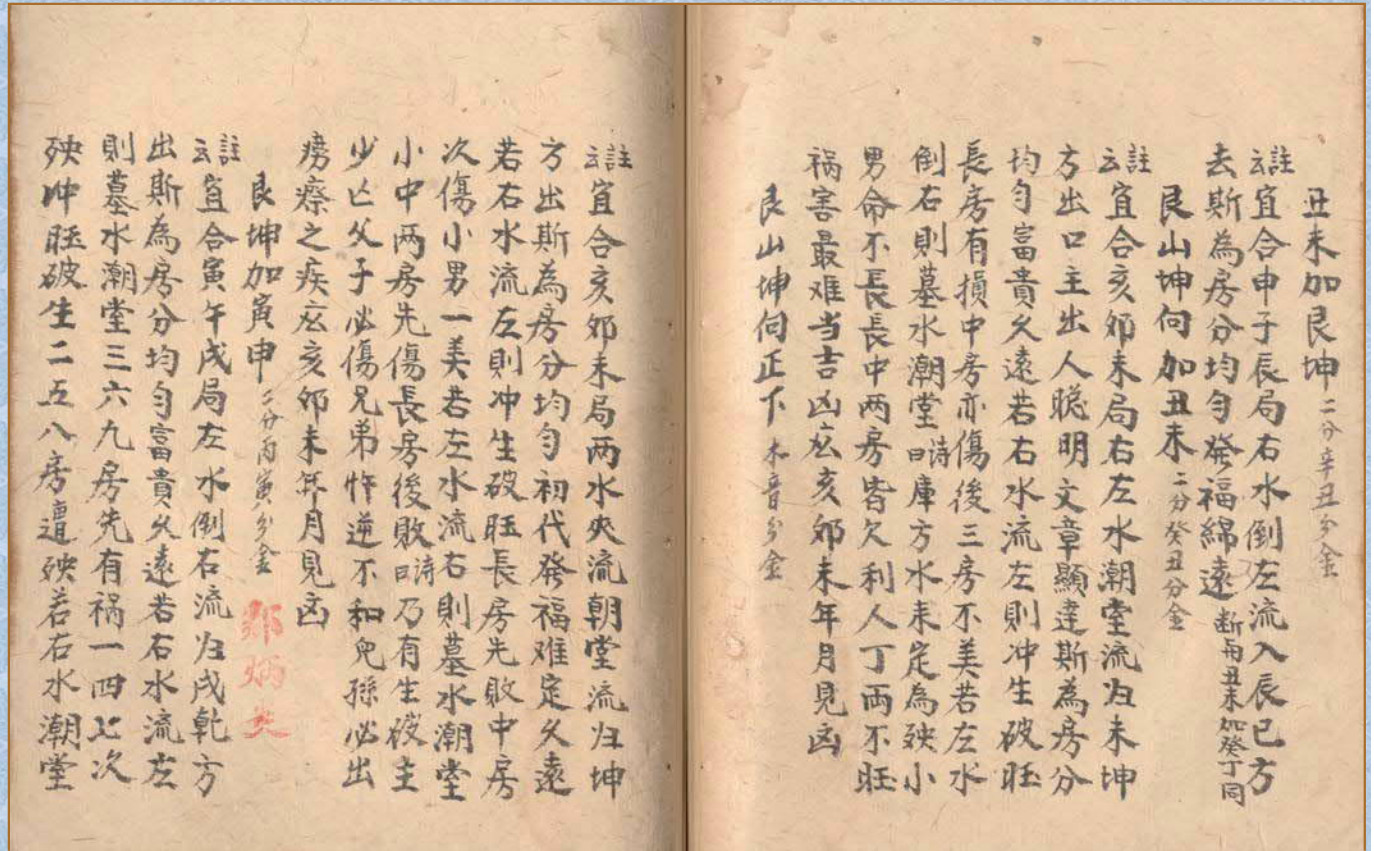 丑未加艮坤 二分辛丑分金
註云宜合申子辰局右水倒左流入辰巳方
去斯為房分均匀發福綿遠 断与丑未加癸丁同
艮山坤向加丑未 二分癸丑分金
註云宜合亥卯未局右左水潮堂流归未坤
方出口主出人聪明文章顯達斯為房分
均匀富貴久遠若右水流左則冲生破旺
長房有損中房亦傷後三房不美若左水
倒右則墓水潮堂 詩曰庫方水来定為殃小
男命不長長中两房皆欠利人丁両不旺
祸害最难当吉凶広亥卯未年月見凶
艮山坤向正下 本音分金
註云宜合亥卯未局两水夾流朝堂流归坤
方出斯為房分均匀初代發福难定久遠
若右水流左則冲生破旺長房先敗中房
次傷小男一美若左水流右則墓水潮堂
小中两房先傷長房後敗 詩曰乃有生破主
少亡父子必傷兄弟忤逆不和児孫必出
痨瘵之疾広亥卯未年月見凶
艮坤加寅申 二分丙寅分金
註云宜合寅午戌局左水倒右流归戌乾方
出斯為房分均匀富貴久遠若右水流左
則墓水潮堂三六九房先有祸一四七次
殃冲旺破生二五八房遭殃若右水潮堂